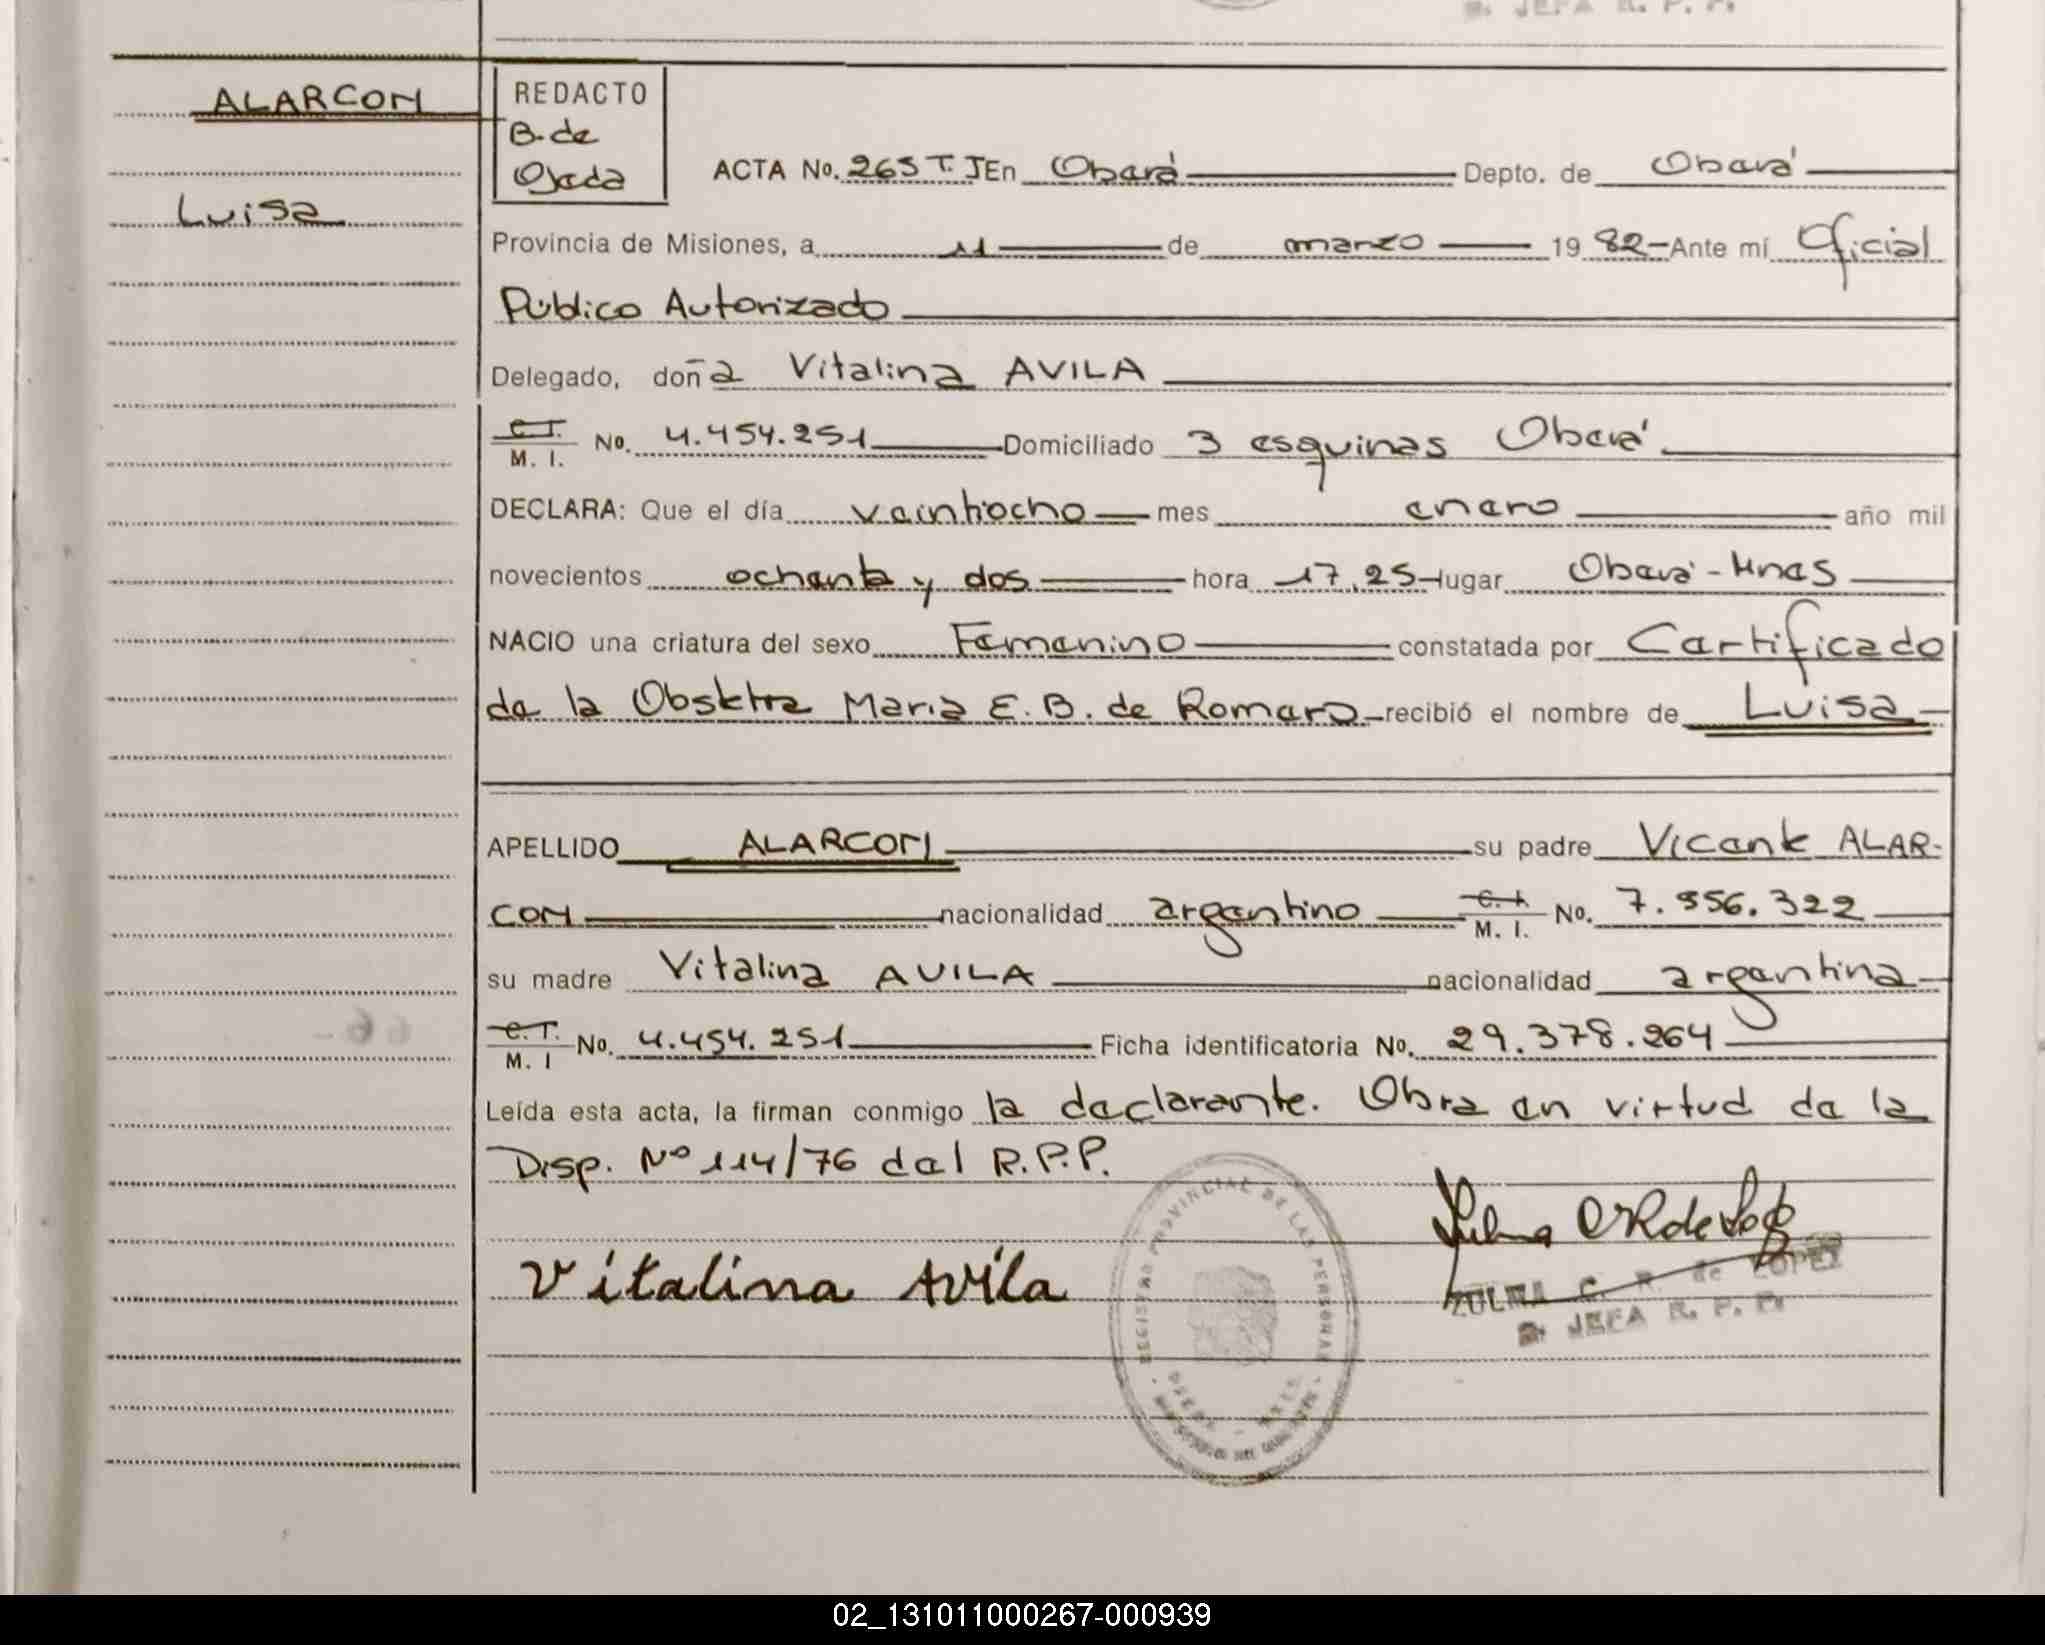 JEFA R. P. P.
ALARCON
Luisa
REDACTO
B. de
Ojeda
ACTA No. 265 T. I En Oberá Depto. de Oberá
Provincia de Misiones, a 11 de marzo 1982- Ante mí Oficial
Público Autorizado
Delegado, doña Vitalina AVILA
C.I. M. I. No. 4.454.251 Domiciliado 3 esquinas Oberá
DECLARA: Que el día veintiocho mes enero año mil
novecientos ochenta y dos hora 17,25 lugar Oberá - Mnes
NACIO una criatura del sexo Femenino constatada por Certificado
de la Obstetra Maria E. B. de Romero recibió el nombre de Luisa
APELLIDO ALARCON su padre Vicente ALAR-
CON nacionalidad argentino C.I. M. I. No. 7.556.322
su madre Vitalina AVILA nacionalidad argentina
C.I. M. I No. 4.454.251 Ficha identificatoria No. 29.378.264
Leída esta acta, la firman conmigo la declarante. Obra en virtud de la
Disp. Nº 114/76 del R.P.P.
Vitalina Avila
REGISTRO PROVINCIAL DE LAS PERSONAS
ZULMA C. R. de LOPEZ
JEFA R. P. P.
02_131011000267-000939